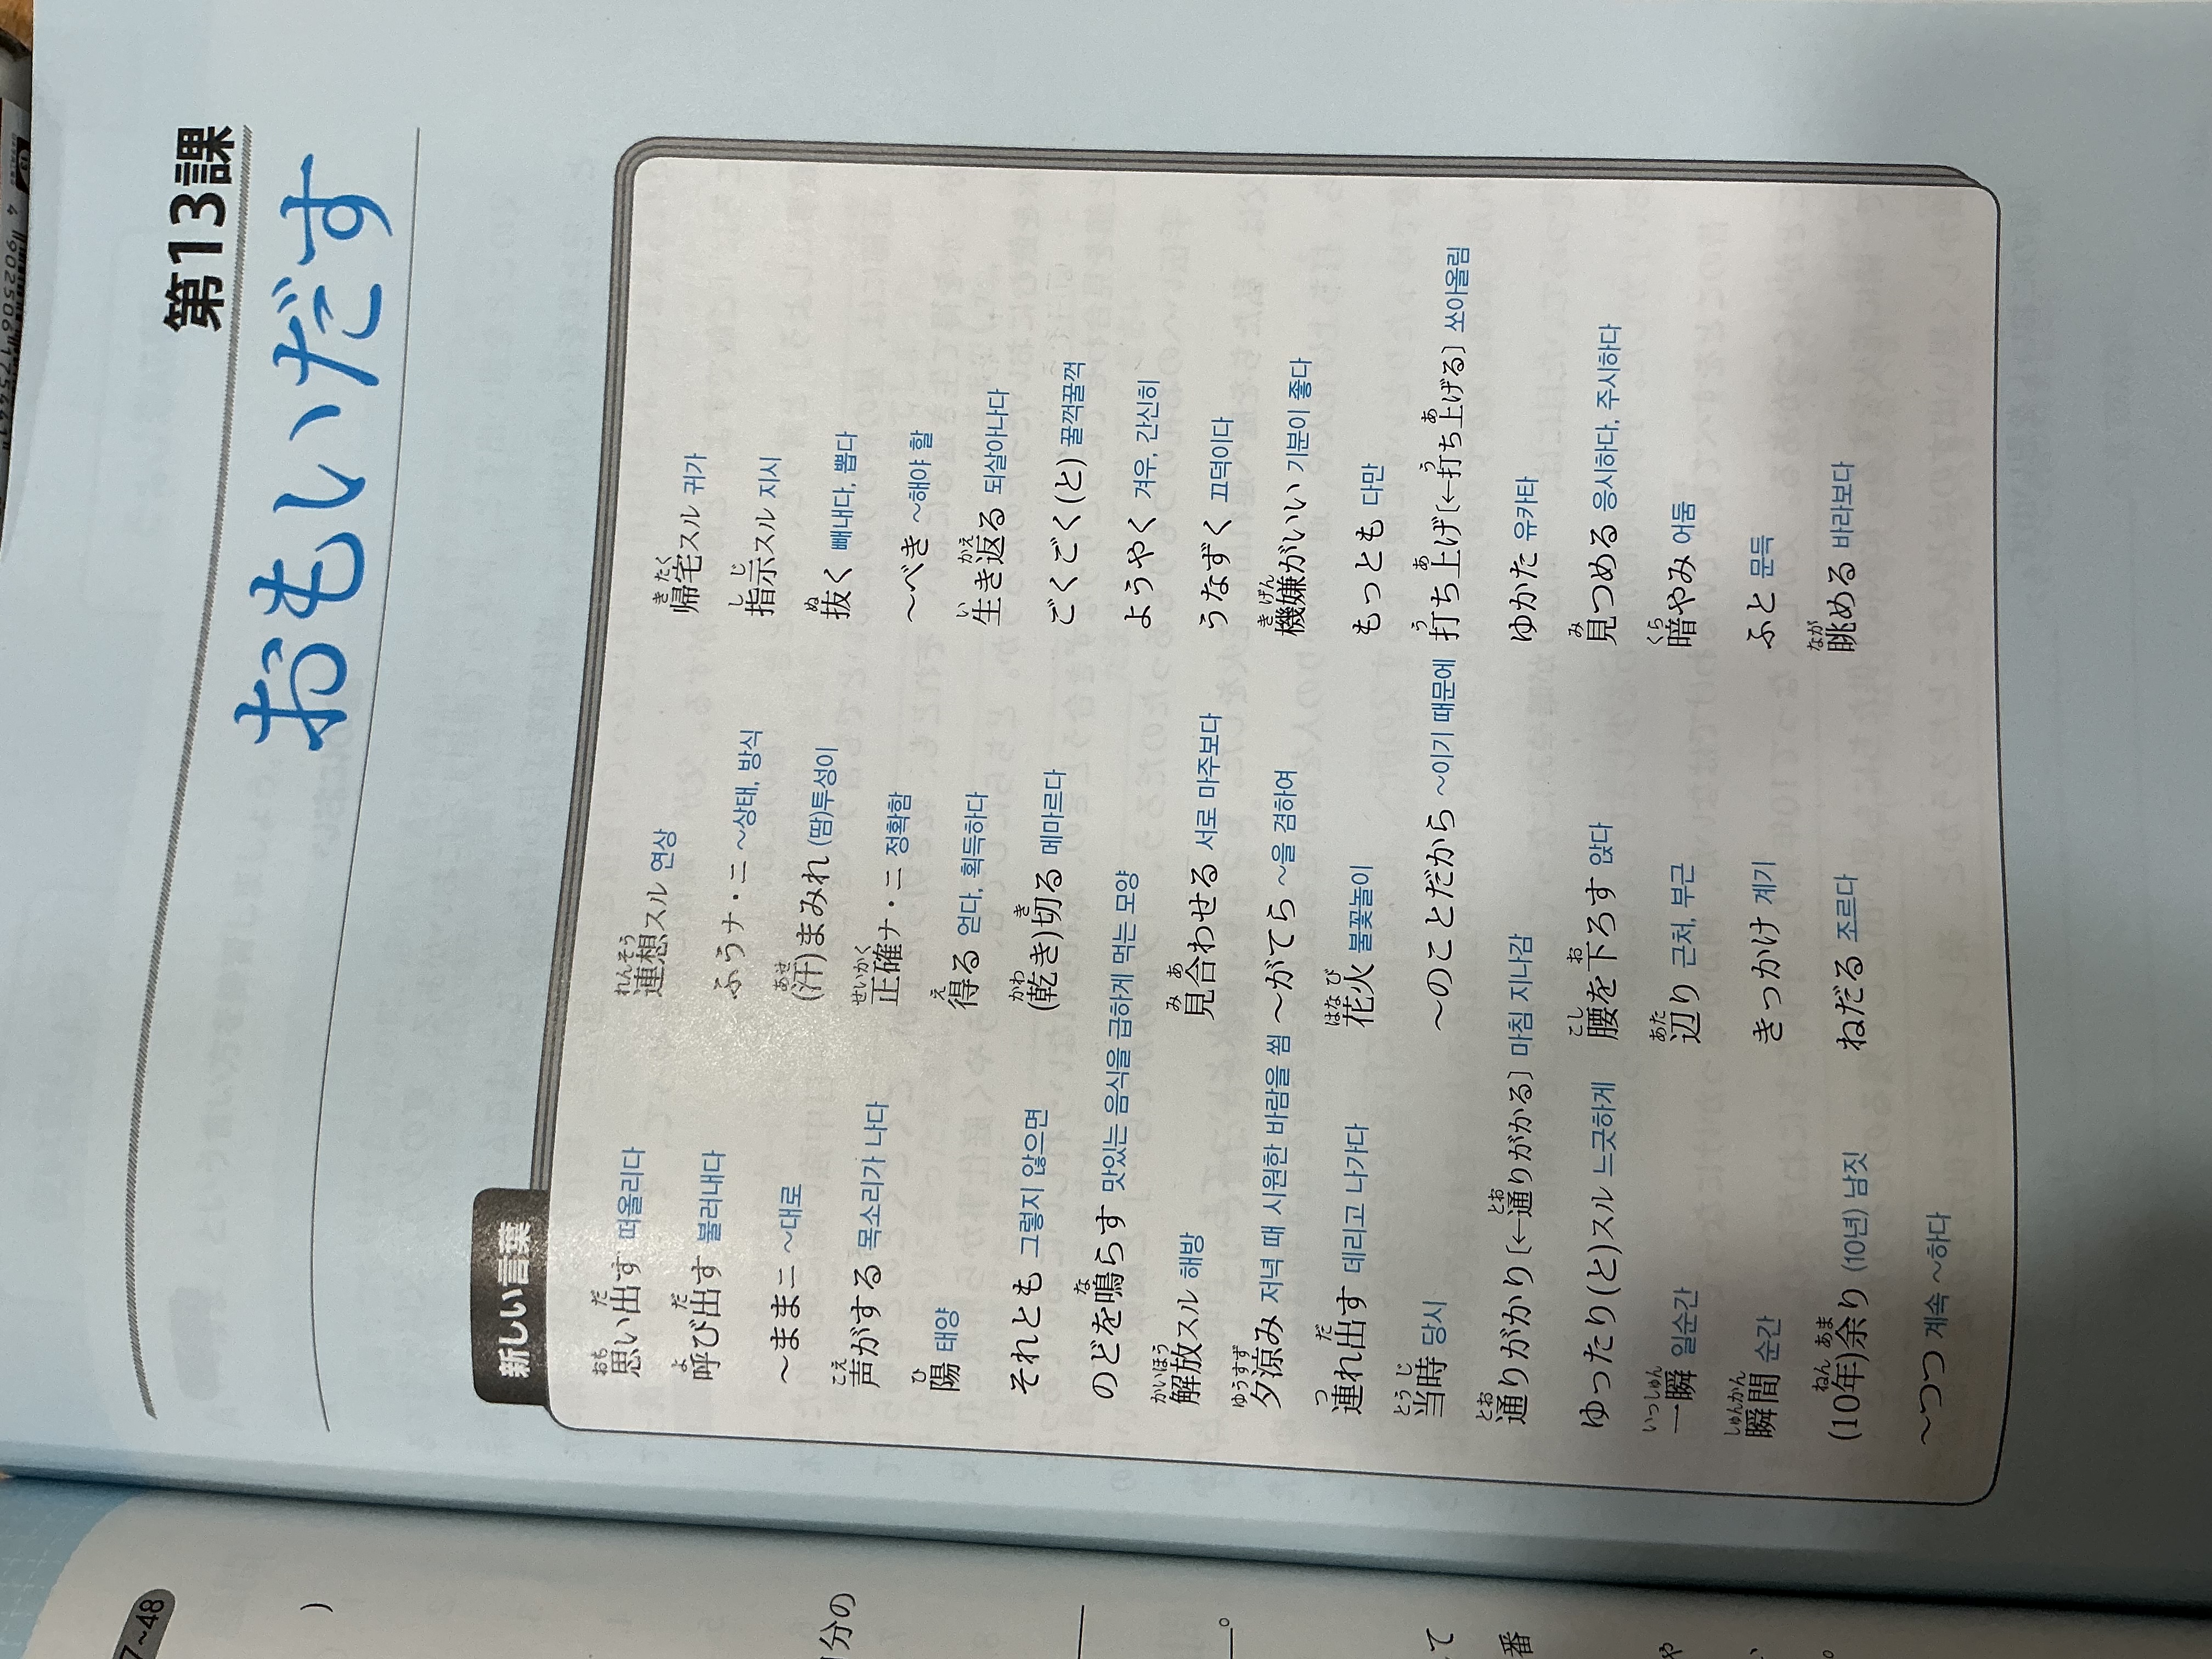 第13課
おもいだす
新しい言葉
思い出す 떠올리다 連想スル 연상 帰宅スル 귀가
呼び出す 불러내다 ふうナ・ニ ~상태, 방식 指示スル 지시
~ままニ ~대로 (汗)まみれ (땀)투성이 抜く 빼내다, 뽑다
声がする 목소리가 나다 正確ナ・ニ 정확함 ~べき ~해야 할
陽 태양 得る 얻다, 획득하다 生き返る 되살아나다
それとも 그렇지 않으면 (乾き)切る 메마르다 ごくごく(と) 꿀꺽꿀꺽
のどを鳴らす 맛있는 음식을 급하게 먹는 모양 ようやく 겨우, 간신히
解放スル 해방 見合わせる 서로 마주보다 うなずく 끄덕이다
夕涼み 저녁 때 시원한 바람을 쐼 ~がてら ~을 겸하여 機嫌がいい 기분이 좋다
連れ出す 데리고 나가다 花火 불꽃놀이 もっとも 다만
当時 당시 ~のことだから ~이기 때문에 打ち上げ[←打ち上げる] 쏘아올림
通りがかり[←通りがかる] 마침 지나감 ゆかた 유카타
ゆったり(と)スル 느긋하게 腰を下ろす 앉다 見つめる 응시하다, 주시하다
一瞬 일순간 辺り 근처, 부근 暗やみ 어둠
瞬間 순간 きっかけ 계기 ふと 문득
(10年)余り (10년) 남짓 ねだる 조르다 眺める 바라보다
~つつ 계속 ~하다
7~48
)
分の
。
て
番
や